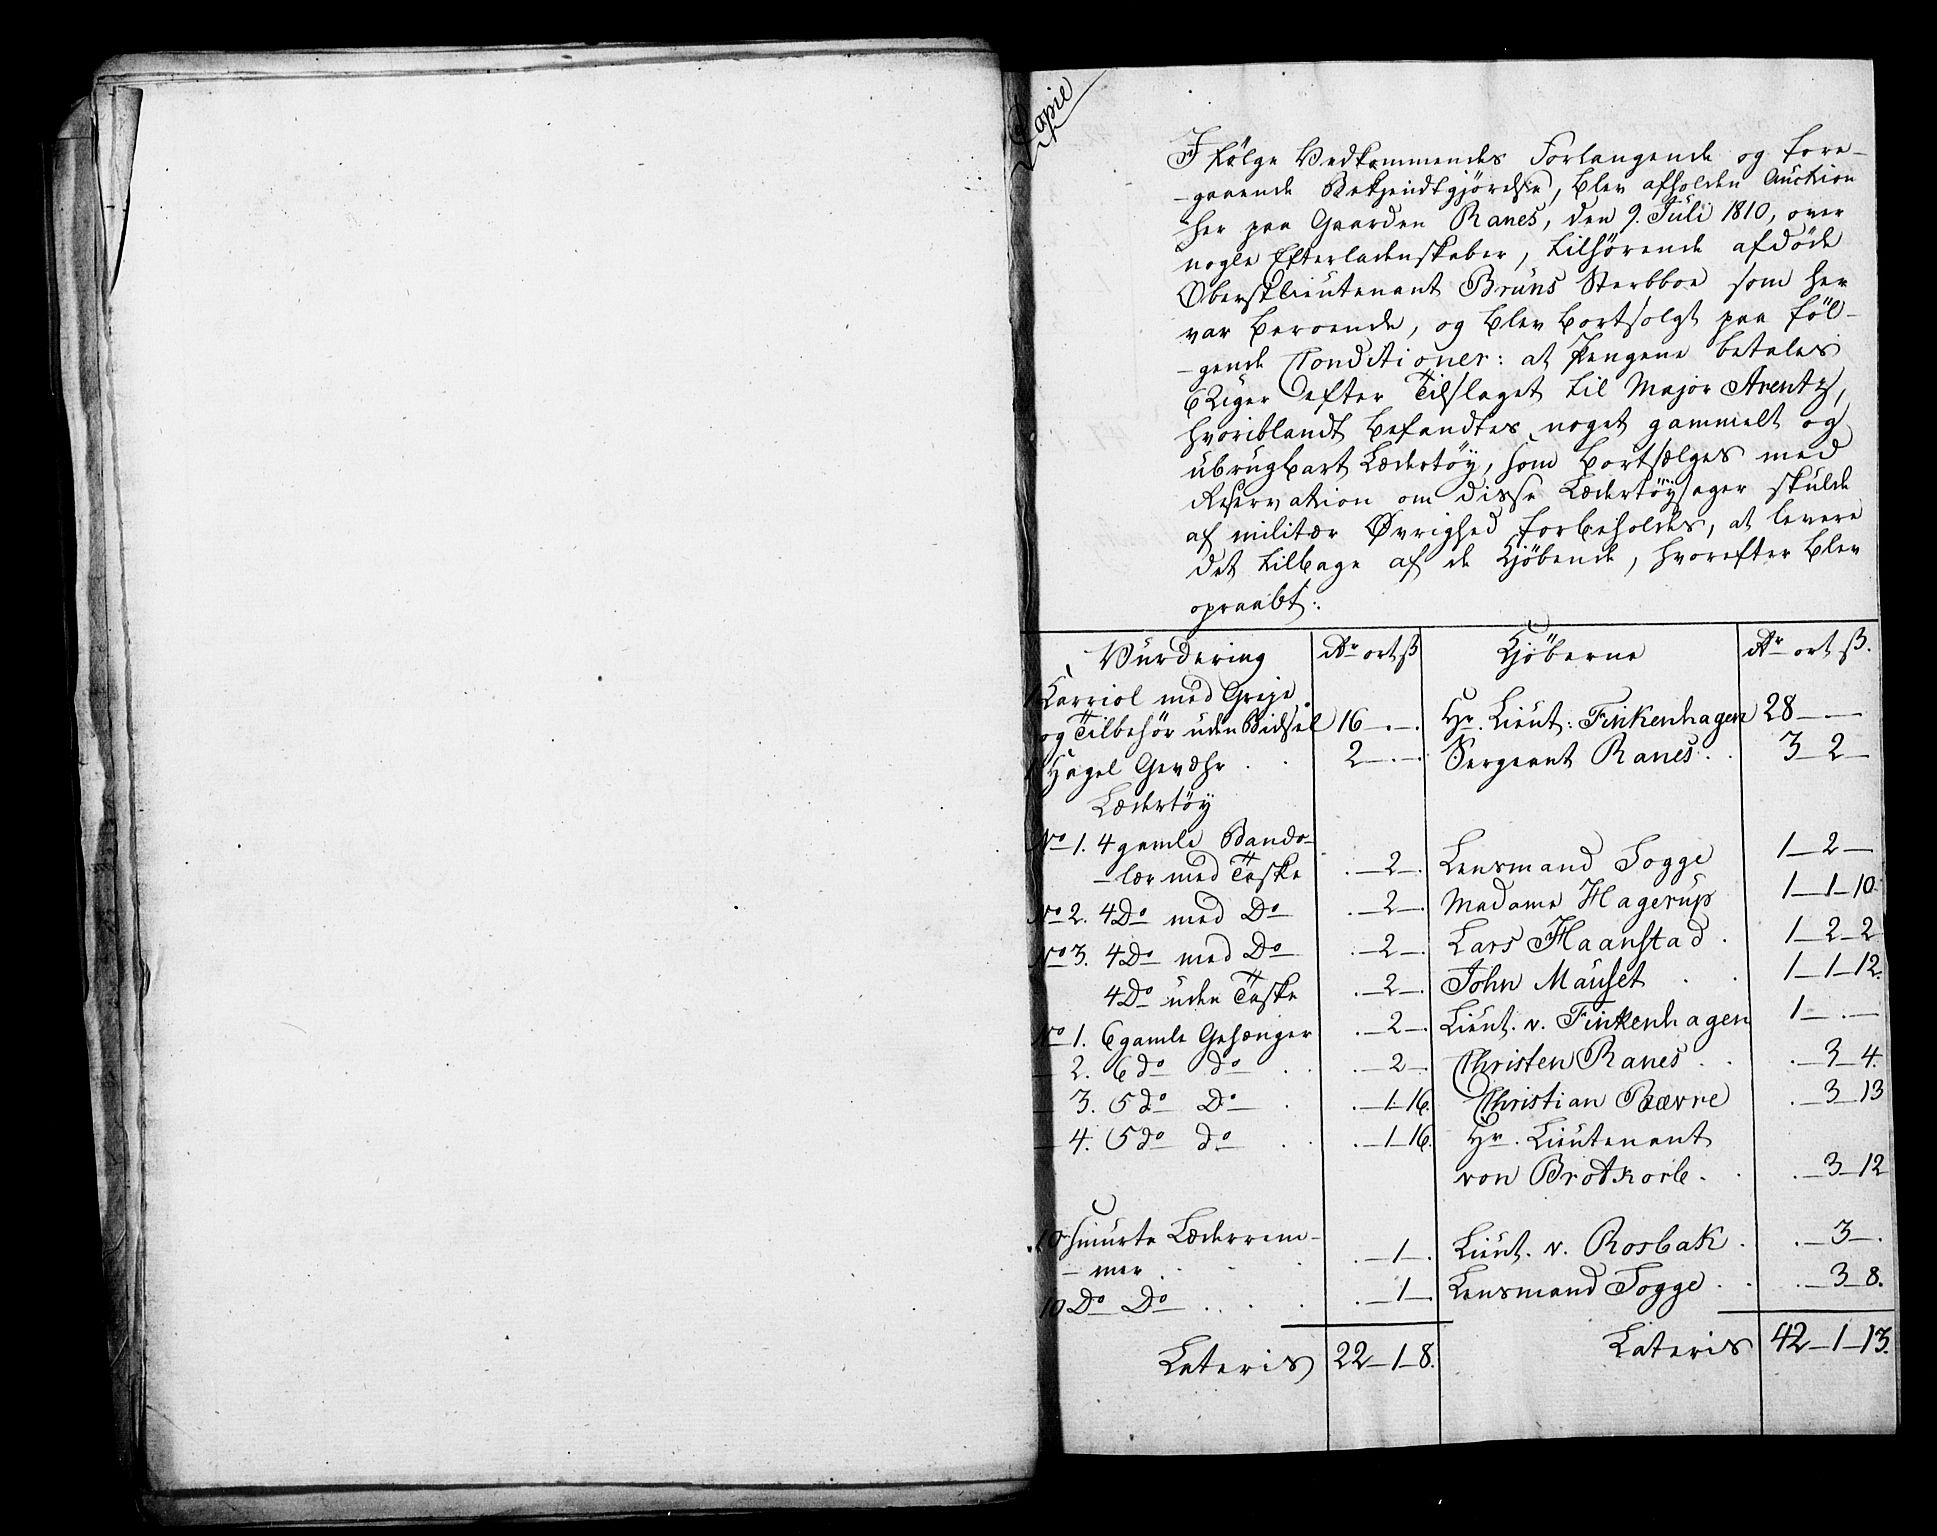 Copie
I følge Vedkommendes Forlangende og fore-
-gaaende Bekjendtgjørelse, blev afholden Auction
her paa Gaarden Ranes, den 9. Juli 1810, over
nogle Efterladenskaber, tilhørende afdøde
Oberstlieutenant Bruns Sterbboe som her
var beroende, og blev bortsolgt paa føl-
-gende Conditioner: at Pengene betales
6 Uger efter Tilslaget til Major Arentz,
hvoriblandt befandtes noget gammelt og
ubrugbart Lædertøy, som bortsælges med
Reservation om disse Lædertøysager skulde
af militær Øvrighed forbeholdes, at levere
det tilbage af de Kjøbende, hvorefter blev
opraabt:
Vurdering | Rdr ort ß | Kjøberne | Rdr ort ß.
1 Karriol med Greje
og Tilbehør uden Bidsel 16 — . — . Hr. Lieut: Finkenhagen 28 — —
1 Hagel Gevæhr . . 2 — . — Sergeant Ranes . . 3 — 2 —
Lædertøy
No 1. 4 gamle Bando-
-lær med Taske . — 2 — . Lensmand Togge 1 — 2 —
No 2. 4 Do med Do . — 2 — . Madame Hagerup 1 — 1 — 10.
No 3. 4 Do med Do . — 2 — . Lars Haanstad . 1 — 2 — 2
4 Do uden Taske . — 2 — . John Mauset . . 1 — 1 — 12.
No 1. 6 gamle Gehænger . — 2 — . Lieut. v. Finkenhagen 1 — . —
2. 6 do do . . . — 2 — . Christen Ranes . . . — 3 — 4.
3. 5 do Do . . — 1 — 16. Christian Bævre . — 3 — 13
4. 5 do do . . . — 1 — 16. Hr. Lieutenant
von Brotkorb . . . — 3 — 12
10 smurte Læderrem-
-mer . . . . — 1 — . Lieut. v. Rosbak . . — 3 — .
10 Do Do . . . . . — 1 — . Lensmand Togge . . . — 3 — 8.
Lateris 22 — 1 — 8. Lateris 42 — 1 — 13.